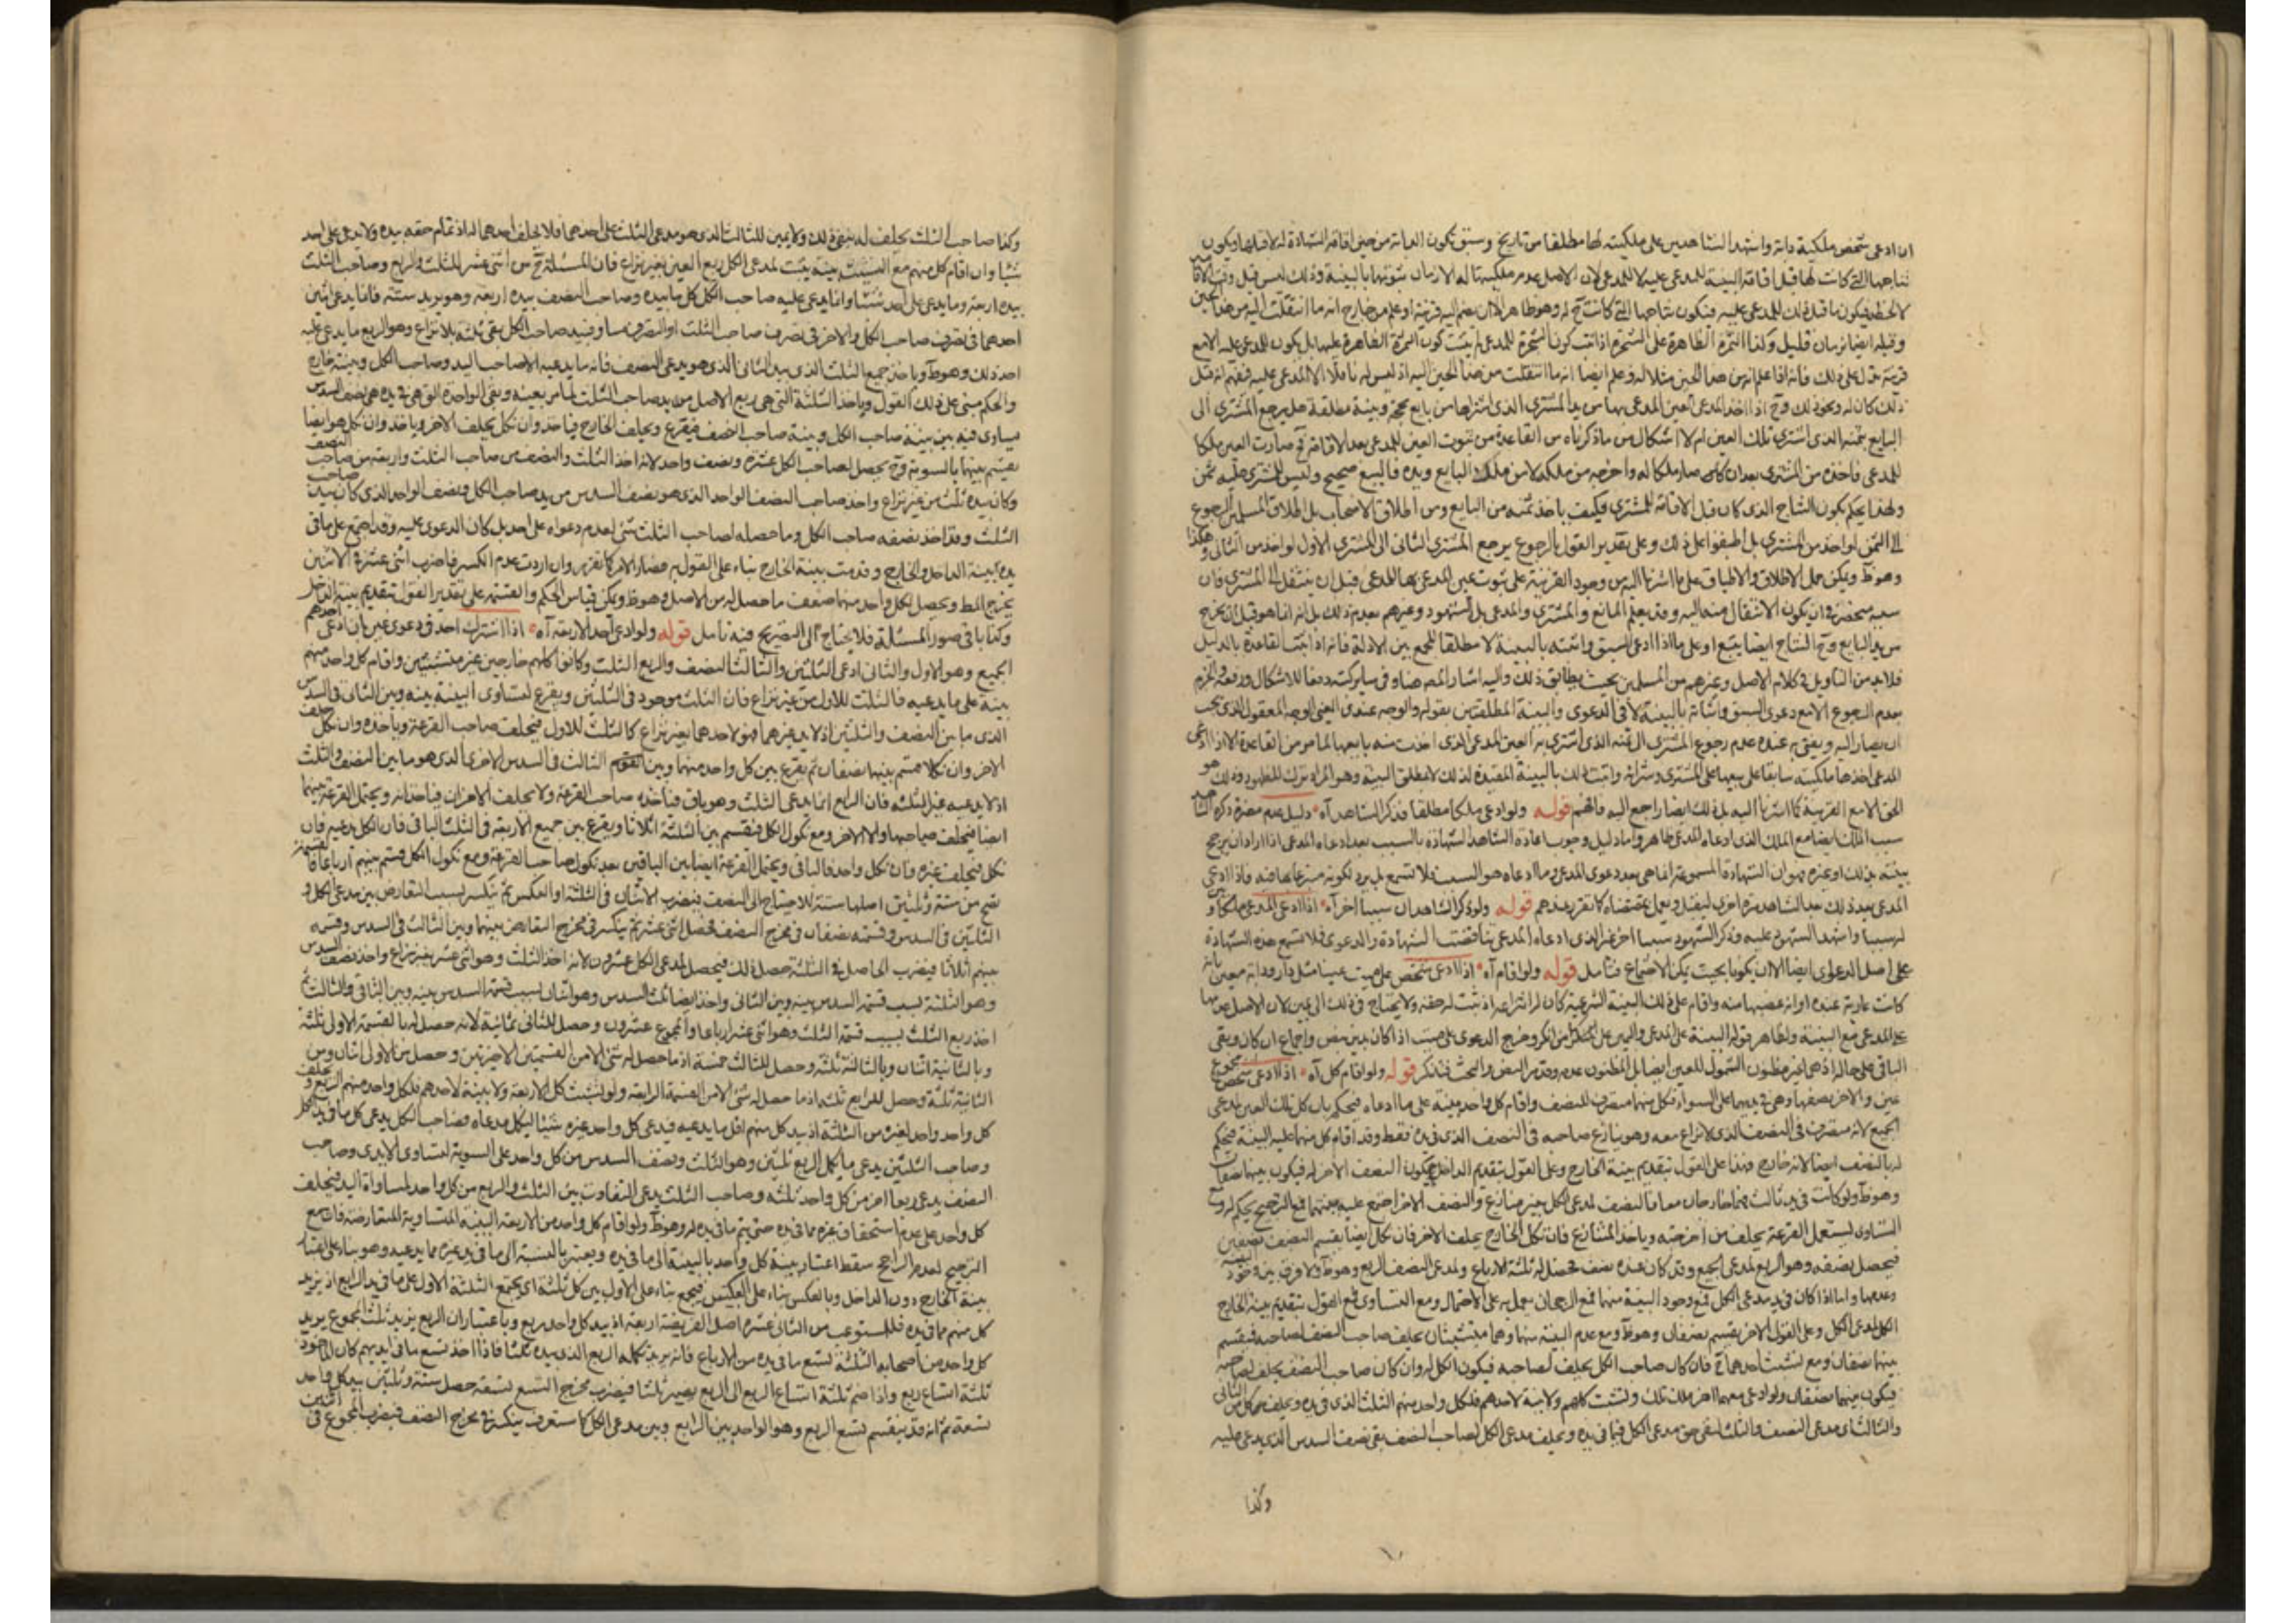 ان ادعى شخص ملكية دابة واشهد الشاهدين على ملكيته لها مطلقا من تاريخ وسبق تكون الدابة من حين اقامة الشهادة له لا قبلها ويكون
نتاجها التي كانت لها قبل اقامة البينة للمدعى عليه لا للمدعي لان الاصل عدم ملكيتها له الا زمان ثبوتها بالبينة وذلك ليس قبل وقت
فيكون ما قبل ذلك للمدعى عليه فيكون نتاجها التي كانت ح له وهو ظاهر الا ان ينضم اليه قرينة او علم من خارج انه ما انتقلت اليه من هذا الحين
وقبله ايضا بزمان قليل وكذا الثمرة الظاهرة على الشجرة اذا اثبت كون الشجرة للمدعي لم يثبت كون الثمرة الظاهرة عليها بل يكون للمدعى عليه الا مع
قرينة تدل على ذلك فانه اذا علم انه من هذا الحين مثلا له وعلم ايضا انه ما انتقلت من هذا الحين اليه اذ ليس له ناقل الا المدعى عليه فيفهم انه قبل
ذلك كان له ونحو ذلك وح اذا اخذ المدعي العين المدعى بها من يد المشتري الذي اشتراها من بايع بحجة وبينة مطلقة هل يرجع المشتري الى
البايع بثمنه الذي اشترى تلك العين ام لا اشكال من ما ذكرناه من القاعدة من ثبوت العين للمدعي بعد الاقامة ح صارت العين ملكا
للمدعي فاخذه من المشتري بعد ان كان صار ملكا له واخرجه من ملكه لا من ملك البايع ويده فالبيع صحيح وليس للمشتري عليه ثمن
ولهذا يحكم بكون النتاج الذي كان قبل الاقامة للمشتري فكيف ياخذ ثمنه من البايع ومن اطلاق الاصحاب بل اطلاق المسلمين الرجوع
الى الثمن لو اخذ من المشتري بل اطبقوا على ذلك وعلى تقدير القول بالرجوع يرجع المشتري الثاني الى المشتري الاول لو اخذ من الثاني وهكذا
وهو ظ ويمكن حمل الاطلاق والاطباق على ما اشرنا اليه من وجود القرينة على ثبوت عين المدعى بها للمدعي قبل ان ينتقل الى المشتري فان
ان يكون الانتقال منه اليه وقد يعلم البايع والمشتري والمدعي بل الشهود وغيرهم بعدم ذلك بل انه انما هو قبل ان يخرج
من يد البايع وح النتاج ايضا يتبع او على ما اذا ادعى السبق واثبته بالبينة لا مطلقا للجمع بين الادلة فانه اذا ثبت القاعدة بالدليل
فلا بد من التاويل في كلام الاصل وغيرهم من المسلمين بحيث يطابق ذلك واليه اشار المص هنا وفي ساير كتبه دفعا للاشكال
بعدم الرجوع الا مع دعوى السبق واثباته بالبينة لا في الدعوى والبينة المطلقتين بقوله والوجه عندي اي الوجه المعقول الذي يجب
ان يصار اليه ويفتى به عنده عدم رجوع المشتري الى ثمنه الذي اشترى به العين المدعى الذي اخذت منه بايعها لما مر من القاعدة الا اذا ادعى
المدعي اخذها ملكيته سابقا على بيعها على المشتري وشرائه واثبت ذلك بالبينة المقيدة لذلك لا بمطلق البينة وهو المراد ترك للظهور وذلك هو
الحق الا مع القرينة كما اشرنا اليه بل ذلك ايضا راجع اليه فافهم قوله ولو ادعى ملكا مطلقا فذكر الشاهد اه دليل عدم مضرة ذكره الشاهد
سبب الملك ايضا مع الملك الذي ادعاه المدعي ظاهر واما دليل وجوب اعادة الشاهد الشهادة بالسبب بعد ادعاه المدعي اذا اراد ان يرجح
بينته بذلك او غيره فهو ان الشهادة المسموعة انما هي بعد دعوى المدعي وما ادعاه هو السبب فلا تسمع بل يرد لكونه متبرعا بها فاذا ادعى
المدعي بعد ذلك يعيد الشاهد مرة اخرى ليقبل ويعمل بمقتضاه كما تقرر عندهم قوله ولو ذكر الشاهدان سببا اخر اه اذا ادعى المدعي ملكا و
له سببا واشهد الشهود عليه وذكر الشهود سببا اخر غير الذي ادعاه المدعي تناقضت الشهادة والدعوى فلا تسمع هذه الشهادة
على اصل الدعوى ايضا الا ان يكونا بحيث يمكن الاجتماع فتامل قوله ولو اقام اه اذا ادعى شخص على ميت عينا مثل دار ودابة معين
كانت عارية عنده او انه غصبها منه واقام على ذلك البينة الشرعية كان له انتزاعها اذ ثبت له حقه ولا يحتاج في ذلك الى يمين لان الاصل عدمها
على المدعي مع البينة ولظاهر قوله البينة على المدعي واليمين على من انكر وخرج الدعوى على ميت اذا كان بدين بنص واجماع ان كان وبقي
الباقي على حاله اذ هي غير مظنون الشمول للعين ايضا بل المظنون عدمه وقد مر النص والبحث فتذكر قوله ولو اقام كل اه اذا ادعى شخص مجموع
عين والاخر نصفها وهي في يديهما على السواء فكل منهما متصرف للنصف واقام كل واحد بينة على ما ادعاه فيحكم بان كل تلك العين لمدعي
الجميع لانه متصرف في النصف الذي لا نزاع معه وهو ينازع صاحبه في النصف الذي في يده فقط وقد اقام كل منهما عليه البينة فيحكم
له بالنصف ايضا لانه خارج وهذا على القول بتقديم بينة الخارج وعلى القول بتقديم الداخل يكون النصف الاخر له فيكون بينهما نصفان
وهو ظ ولو كانت في يد ثالث فهما خارجان معا فالنصف لمدعي الكل بغير منازع والنصف الاخر اجتمع عليه بينتهما فمع الترجيح يحكم له ومع
التساوي يستعمل القرعة يحلف من اخرجته وياخذ المتنازع فان نكل الخارج يحلف الاخر فان نكل ايضا يقسم النصف نصفين
فيحصل نصفه وهو الربع لمدعي الجميع وقد كان عنده نصف فحصل له ثلثة الارباع ولمدعي النصف الربع وهو ظ ولا فرق بين وجود
وعدمها واما اذا كان في يد مدعي الكل فمع وجود البينة منهما فمع الرجحان يعمل به على الاحتمال ومع التساوي فمع القول بتقديم بينة الخارج
الكل لمدعي الكل وعلى القول الاخر يقسم نصفان وهو ظ ومع عدم البينة منهما وهما متشبثان يحلف صاحب النصف لصاحبه فيقسم
بينهما نصفان ومع تشبث احدهما ح فان كان صاحب الكل يحلف لصاحبه فيكون الكل له وان كان صاحب النصف يحلف لصاحبه
فيكون بينهما نصفان ولو ادعى معهما اخر ثلث تلك وتشبث كلهم ولا بينة لاحدهم فلكل واحد منهم الثلث الذي في يده ويحلف كل من الثاني
والثالث اي مدعي النصف والثلث لنفي حق مدعي الكل فيما في يده ويحلف مدعي الكل لصاحب النصف بنفي نصف السدس الذي يدعي عليه
وكذا
وكذا صاحب الثلث يحلف له بنفي ذلك ولا يمين للثالث الذي هو مدعي الثلث على احدهما فلا يحلف احدهما له اذ تمام حقه بيده ولا يدعي على احد
شيئا وان اقام كل منهم مع التشبث بينة يثبت لمدعي الكل ربع العين بغير نزاع فان المسئلة ح من اثنى عشر للثلث والربع وصاحب الثلث
بيده اربعة وما يدعي على احد شيئا وانما يدعي عليه صاحب الكل كل ما بيده وصاحب النصف بيده اربعة وهو يريد ستة فانما يدعي اثنين
احدهما في تصرف صاحب الكل والاخر في تصرف صاحب الثلث اذ التصرف مساو فبيد صاحب الكل بقي ثلثة بلا نزاع وهو الربع ما يدعي عليه
احد ذلك وهو ظ وياخذ جميع الثلث الذي بيد الثاني الذي هو يدعي النصف فانه ما يدعيه الا صاحب اليد وصاحب الكل وبينته خارج
والحكم مبني على ذلك القول وياخذ الثلثة التي هي ربع الاصل من يد صاحب الثلث لما مر بعينه وبقي الواحدة التي هي في يده هي نصف السدس
يساوى فيه بين بينة صاحب الكل وبينة صاحب النصف فيقرع ويحلف الخارج فياخذ وان نكل يحلف الاخر وياخذ وان نكل هو ايضا
يقسم بينهما بالسوية وح يحصل لصاحب الكل عشرة ونصف واحد لانه اخذ الثلث والنصف من صاحب الثلث واربعة من صاحب النصف
وكان بيده ثلث من غير نزاع واخذ صاحب النصف نصف الواحد الذي هو نصف السدس من يد صاحب الكل ونصف الواحد الذي كان بيد صاحب
الثلث وقد اخذ نصفه صاحب الكل وما حصله لصاحب الثلث شئ لعدم دعواه على احد بل كان الدعوى عليه وقد اجتمع على ما في
يده بينة الداخل والخارج وقدمت بينة الخارج بناء على القول به فصار الامر كما تقرر وان اردت عدم الكسر فاضرب اثنى عشر في الاثنين
يخرج المط ويحصل لكل واحد منهما ضعف ما حصل له من الاصل وهو ظ ويمكن قياس الحكم والقسمة على تقدير القول بتقديم بينة الداخل
وكذا باقي صور المسئلة فلا يحتاج الى التصريح فيه تامل قوله ولو ادعى احد الاربعة اه اذا اشترك احد في دعوى عين بان ادعى احدهم
الجميع وهو الاول والثاني ادعى الثلثين والثالث النصف والربع الثلث وكانوا كلهم خارجين غير متشبثين واقام كل واحد منهم
بينة على ما يدعيه فالثلث للاول من غير نزاع فان الثلث موجود في الثلثين ويقرع لتساوي البينة بينه وبين الثاني في السدس
الذي ما بين النصف والثلثين اذ لا يدعي غيرهما فهو لاحدهما بغير نزاع كالثلث للاول فيحلف صاحب القرعة وياخذه وان نكل حلف
الاخر وان نكلا قسم بينهما نصفان ثم يقرع بين كل واحد منهما وبين الثالث في السدس الاخرى الذي هو ما بين النصف والثلث
اذ لا يدعيه غير الثلثة فان الرابع انما يدعي الثلث وهو باق فياخذه صاحب القرعة ولا يحلف الاخران فياخذانه ويحتمل القرعة بينهما
ايضا فيحلف صاحبها والا الاخر ومع نكول الكل فيقسم بين الثلثة اثلاثا ويقرع بين جميع الاربعة في الثلث الباقي فان الكل يدعيه فان
نكل فيحلف غيره فان نكل واحد فالباقي ويحتمل القرعة ايضا بين الباقين بعد نكول صاحب القرعة ومع نكول الكل قسم بينهم ارباعا فالقسمة
تصح من ستة وثلثين اصلها ستة للاحتياج الى النصف فيضرب الاثنان في الثلثة او العكس ثم تنكسر بسبب التعارض بين مدعي الكل و
الثلثين في السدس وقسمته نصفان في مخرج النصف فحصل اثنى عشر ثم ينكسر في مخرج التعارض بينهما وبين الثالث في السدس وقسمته
بينهم اثلاثا فيضرب الحاصل في الثلثة حصل ذلك فيحصل لمدعي الكل عشرون لانه اخذ الثلث وهو اثنى عشر بغير نزاع واخذ نصف السدس
وهو الثلثة بسبب قسمة السدس بينه وبين الثاني واخذ ايضا ثلث السدس وهو اثنان بسبب قسمة السدس بينه وبين الثاني والثالث ثم
اخذ ربع الثلث بسبب قسمة الثلث وهو اثنى عشر ارباعا والمجموع عشرون وحصل للثاني ثمانية لانه حصل له بالقسمة الاولى ثلثة
وبالثانية اثنان وبالثالثة ثلثة وحصل للثالث خمسة اذ ما حصل له شئ الا من القسمتين الاخيرتين وحصل من الاولى اثنان ومن
الثانية ثلثة وحصل للرابع ثلثة اذ ما حصل له شئ الا من القسمة الرابعة ولو تشبث كل الاربعة ولا بينة لاحدهم فلكل واحد منهم الربع ويحلف
كل واحد واحد لغيره من الثلثة اذ بيد كل منهم اقل ما يدعيه فيدعي كل واحد غيره شيئا ليكمل مدعاه فصاحب الكل يدعي كل ما في يد الكل
وصاحب الثلثين يدعي ما يكمل الربع ثلثين وهو الثلث ونصف السدس من كل واحد على السوية لتساوي الايدي وصاحب
النصف يدعي ربعا اخر من كل واحد ثلثه وصاحب الثلث يدعي التفاوت بين الثلث والربع من كل واحد لمساواة اليد فيحلف
كل واحد على عدم استحقاق غيره مما في يده حتى يتم ما في يده له وهو ظ ولو اقام كل واحد من الاربعة البينة المتساوية المتعارضة فان مع
الترجيح لعدم الراجح سقط اعتبار بينة كل واحد بالنسبة الى ما في يده ويعتبر بالنسبة الى ما في يد غيره مما يدعيه وهو بناء على اعتبار
بينة الخارج دون الداخل وبالعكس بناء على العكس فيجمع بناء على الاول بين كل ثلثة اي يجتمع الثلثة الاول على ما في يد الرابع اذ يزيد
كل منهم مما في يده فللمستوعب من الثاني عشرة اصل الفريضة اربعة اذ بيد كل واحد ربع وباعتبار ان الربع يزيد ثلث المجموع يريد
كل واحد من اصحابه الثلثة تسع ما في يده من الارباع فانه يريد تكملة الربع الذي بيده ثلثا فاذا اخذ تسع ما في ايديهم كان الماخوذ
ثلثة اتساع ربع واذا ضم ثلثة اتساع الربع الى الربع يصير ثلثا فيضرب مخرج التسع تسعة حصل ستة وثلثين بيد كل واحد
تسعة ثم انه قد ينقسم تسع الربع وهو الواحد بين الرابع وبين مدعي الكل كما ستعرف ينكسر في مخرج النصف فيضرب المجموع في اثنين